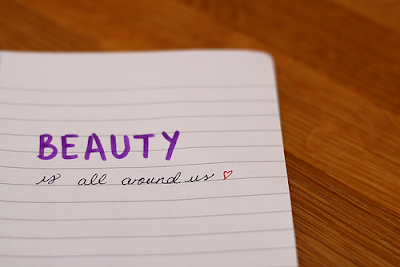 BEAUTY
is all around us ♡